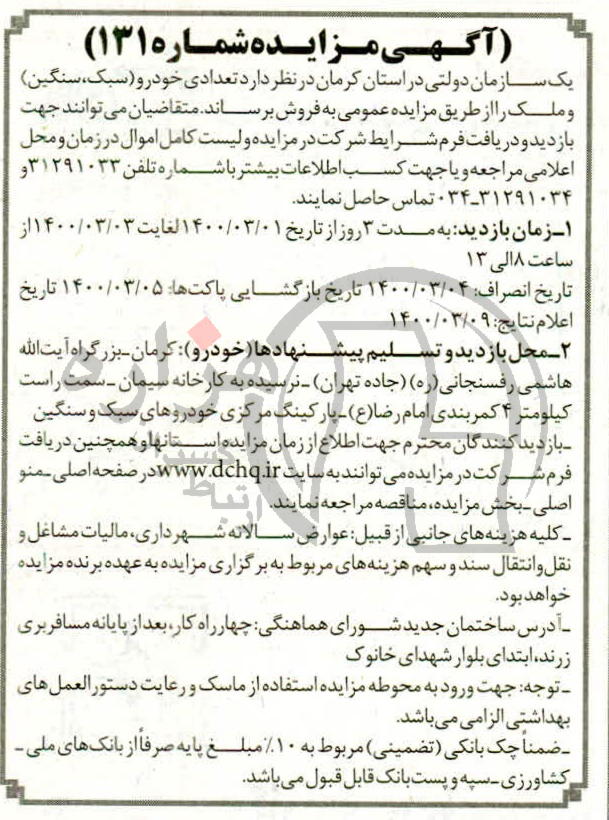 (آگهی مزایده شماره ۱۳۱)
یک سازمان دولتی در استان کرمان در نظر دارد تعدادی خودرو (سبک، سنگین)
و ملک را از طریق مزایده عمومی به فروش برساند. متقاضیان می توانند جهت
بازدید و دریافت فرم شرایط شرکت در مزایده و لیست کامل اموال در زمان و محل
اعلامی مراجعه و یا جهت کسب اطلاعات بیشتر با شماره تلفن ۳۱۲۹۱۰۳۳ و
۳۱۲۹۱۰۳۴-۰۳۴ تماس حاصل نمایند.
۱ـ زمان بازدید: به مدت ۳ روز از تاریخ ۱۴۰۰/۰۳/۰۱ لغایت ۱۴۰۰/۰۳/۰۳ از
ساعت ۸ الی ۱۳
تاریخ انصراف: ۱۴۰۰/۰۳/۰۴ تاریخ بازگشایی پاکت‌ها: ۱۴۰۰/۰۳/۰۵ تاریخ
اعلام نتایج: ۱۴۰۰/۰۳/۰۹
۲ـ محل بازدید و تسلیم پیشنهادها (خودرو): کرمان ـ بزرگراه آیت‌الله
هاشمی رفسنجانی (ره) (جاده تهران) ـ نرسیده به کارخانه سیمان ـ سمت راست
کیلومتر ۴ کمربندی امام رضا (ع) ـ پارکینگ مرکزی خودروهای سبک و سنگین
ـ بازدیدکنندگان محترم جهت اطلاع از زمان مزایده استانها و همچنین دریافت
فرم شرکت در مزایده می توانند به سایت www.dchq.ir در صفحه اصلی ـ منو
اصلی ـ بخش مزایده، مناقصه مراجعه نمایند.
ـ کلیه هزینه‌های جانبی از قبیل: عوارض سالانه شهرداری، مالیات مشاغل و
نقل و انتقال سند و سهم هزینه‌های مربوط به برگزاری مزایده به عهده برنده مزایده
خواهد بود.
ـ آدرس ساختمان جدید شورای هماهنگی: چهارراه کار، بعد از پایانه مسافربری
زرند، ابتدای بلوار شهدای خانوک
ـ توجه: جهت ورود به محوطه مزایده استفاده از ماسک و رعایت دستورالعمل‌های
بهداشتی الزامی می‌باشد.
ـ ضمناً چک بانکی (تضمینی) مربوط به ۱۰٪ مبلغ پایه صرفاً از بانک‌های ملی ـ
کشاورزی ـ سپه و پست بانک قابل قبول می‌باشد.
هزاره
ارتباط